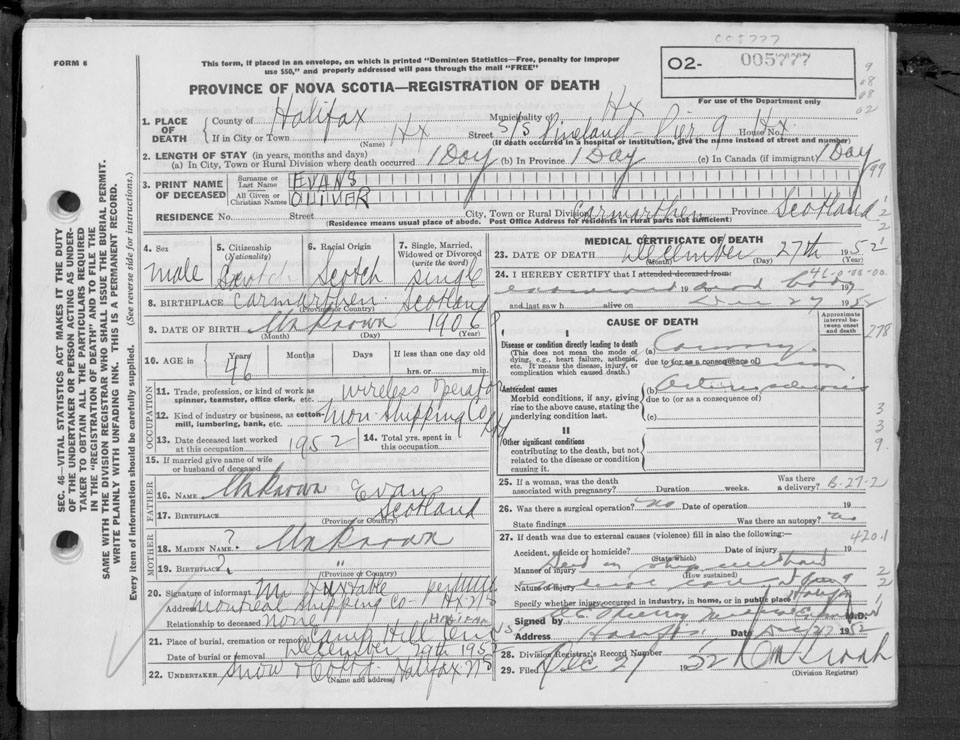 005777
FORM 6
This form, if placed in an envelope, on which is printed "Dominion Statistics—Free, penalty for improper
use $50," and properly addressed will pass through the mail "FREE"
O2- 005777
PROVINCE OF NOVA SCOTIA—REGISTRATION OF DEATH
For use of the Department only
1. PLACE OF DEATH
County of Halifax Municipality of Hx
If in City or Town Hx Street S/S Pineland - Pier 9 House No. Hx
(Name) (If death occurred in a hospital or institution, give the name instead of street and number)
2. LENGTH OF STAY (in years, months and days)
(a) In City, Town or Rural Division where death occurred 1 Day (b) In Province 1 Day (c) In Canada (if immigrant) 1 Day
3. PRINT NAME OF DECEASED
Surname or Last Name EVANS
All Given or Christian Names OLIVER
RESIDENCE No. Street City, Town or Rural Division Carmarthen Province Scotland
(Residence means usual place of abode. Post Office Address for residents in rural parts not sufficient)
4. Sex male
5. Citizenship (Nationality) Scotch
6. Racial Origin Scotch
7. Single, Married, Widowed or Divorced (write the word) Single
8. BIRTHPLACE Carmarthen Scotland
(Province or Country)
9. DATE OF BIRTH Unknown 1906
(Month) (Day) (Year)
10. AGE in Years 46 Months Days If less than one day old
hrs. or min.
OCCUPATION
11. Trade, profession, or kind of work as
spinner, teamster, office clerk, etc. wireless operator
12. Kind of industry or business, as cotton-
mill, lumbering, bank, etc. Mon-Shipping Co
13. Date deceased last worked
at this occupation 1952
14. Total yrs. spent in
this occupation
15. If married give name of wife
or husband of deceased
FATHER
16. NAME Unknown Evans
17. BIRTHPLACE Scotland
(Province or Country)
MOTHER
18. MAIDEN NAME ? Unknown
19. BIRTHPLACE ? "
(Province or Country)
20. Signature of informant Mr Huxtable
Address Montreal Shipping Co- Hx
Relationship to deceased none
21. Place of burial, cremation or removal Camp Hill
Date of burial or removal December 29th 1952
22. UNDERTAKER Snow & Co Ltd. Halifax NS
(Name and address)
MEDICAL CERTIFICATE OF DEATH
23. DATE OF DEATH December 27th 1952
(Month) (Day)
24. I HEREBY CERTIFY that I attended deceased from
examined 19 dead body 19
and last saw h alive on Dec 27 1952
CAUSE OF DEATH
Approximate interval between onset and death
I
Disease or condition directly leading to death
(This does not mean the mode of
dying, e.g., heart failure, asthenia,
etc. It means the disease, injury, or
complication which caused death.)
(a) Coronary
due to (or as a consequence of)
Antecedent causes
Morbid conditions, if any, giving
rise to the above cause, stating the
underlying condition last.
(b) Arteriosclerosis
due to (or as a consequence of)
(c)
II
Other significant conditions
contributing to the death, but not
related to the disease or condition
causing it.
25. If a woman, was the death
associated with pregnancy? Duration weeks. Was there
a delivery?
26. Was there a surgical operation? no Date of operation 19
State findings Was there an autopsy? no
27. If death was due to external causes (violence) fill in also the following:
420.1
Accident, suicide or homicide? Date of injury 19
(State which)
Manner of injury
(How sustained)
Nature of injury
Specify whether injury occurred in industry, in home, or in public place
Signed by M.D.
Address Date Dec 27 1952
28. Division Registrar's Record Number
29. Filed Dec 29 1952
(Division Registrar)
SEC. 46—VITAL STATISTICS ACT MAKES IT THE DUTY
OF THE UNDERTAKER OR PERSON ACTING AS UNDER-
TAKER TO OBTAIN ALL THE PARTICULARS REQUIRED
IN THE "REGISTRATION OF DEATH" AND TO FILE THE
SAME WITH THE DIVISION REGISTRAR WHO SHALL ISSUE THE BURIAL PERMIT.
WRITE PLAINLY WITH UNFADING INK. THIS IS A PERMANENT RECORD.
Every item of information should be carefully supplied. (See reverse side for instructions.)